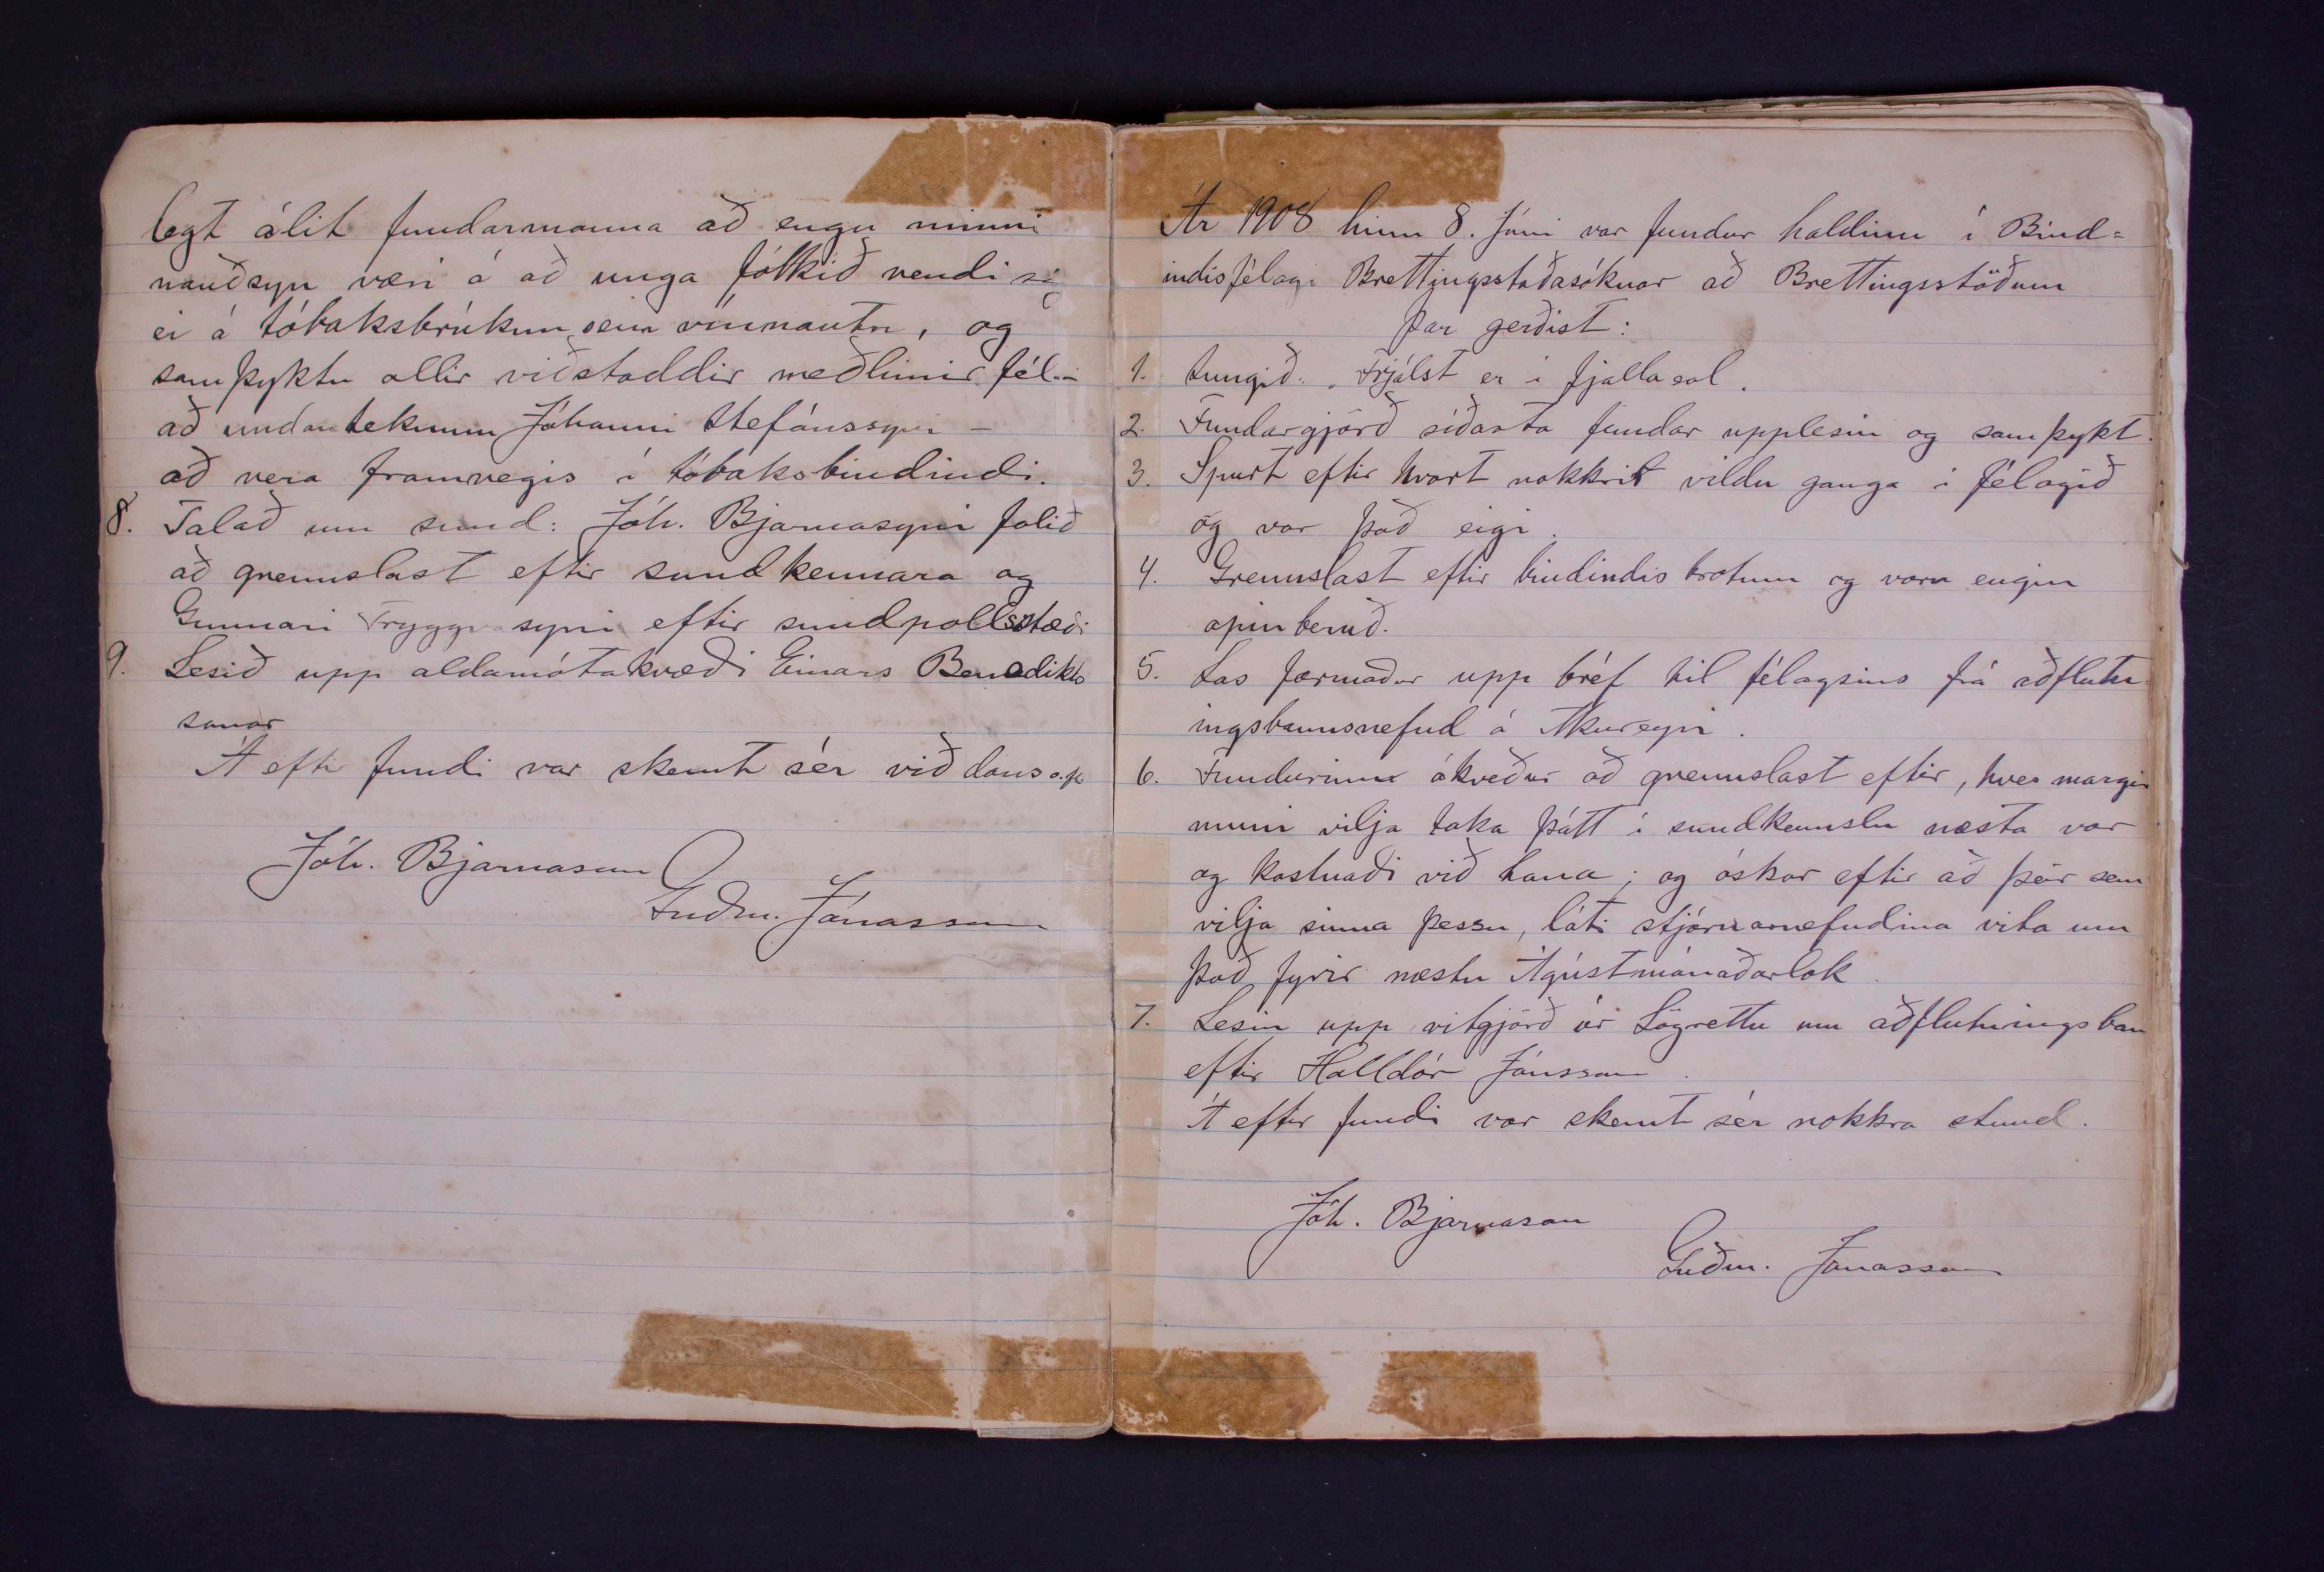 legt álit fundarmanna að engu minni
nauðsyn væri á að unga fólkið vendi sig
ei á tóbaksbrúkun sem vínnautn, og
samþyktu allir viðstaddir meðlimir fél.-
að undanteknum Jóhanni Stefánssyni -
að vera framvegis í tóbaksbindindi.
8. Talað um sund: Jóh. Bjarnasyni falið
að grennslast eftir sundkennara og
Gunnari Tryggvasyni eftir sundpollsstæði
9. Lesið upp aldamótakvæði Einars Benedikts
sonar
Á eftir fundi var skemt sér við dans o.fl.
Jóh. Bjarnason
Guðm. Jónasson
Ár 1908 hinn 8. Júni var fundur haldinn í Bind=
indisfélagi Brettingsstaðasóknar að Brettingsstöðum
Þar gerðist:
1. Sungið: Frjálst er í fjallasal.
2. Fundargjörð síðasta fundar upplesin og samþykt.
3. Spurt eftir hvort nokkrir vildu ganga í félagið
og var það eigi.
4. Grennslast eftir bindindisbrotum og voru engin
opinberuð.
5. Las formaður upp bréf til félagsins frá aðflutn
ingsbannsnefnd á Akureyri.
6. Fundurinn ákveður að grennslast eftir, hve margir
muni vilja taka þátt í sundkenslu næsta vor
og kostnaði við hana; og óskar eftir að þeir sem
vilja sinna þessu, láti stjórnarnefndina vita um
það fyrir næstu Ágústmánaðarlok.
7. Lesin upp ritgjörð úr Lögrettu um aðflutningsban
eftir Halldór Jónsson.
Á eftir fundi var skemt sér nokkra stund.
Jóh. Bjarnason
Guðm. Jónasson